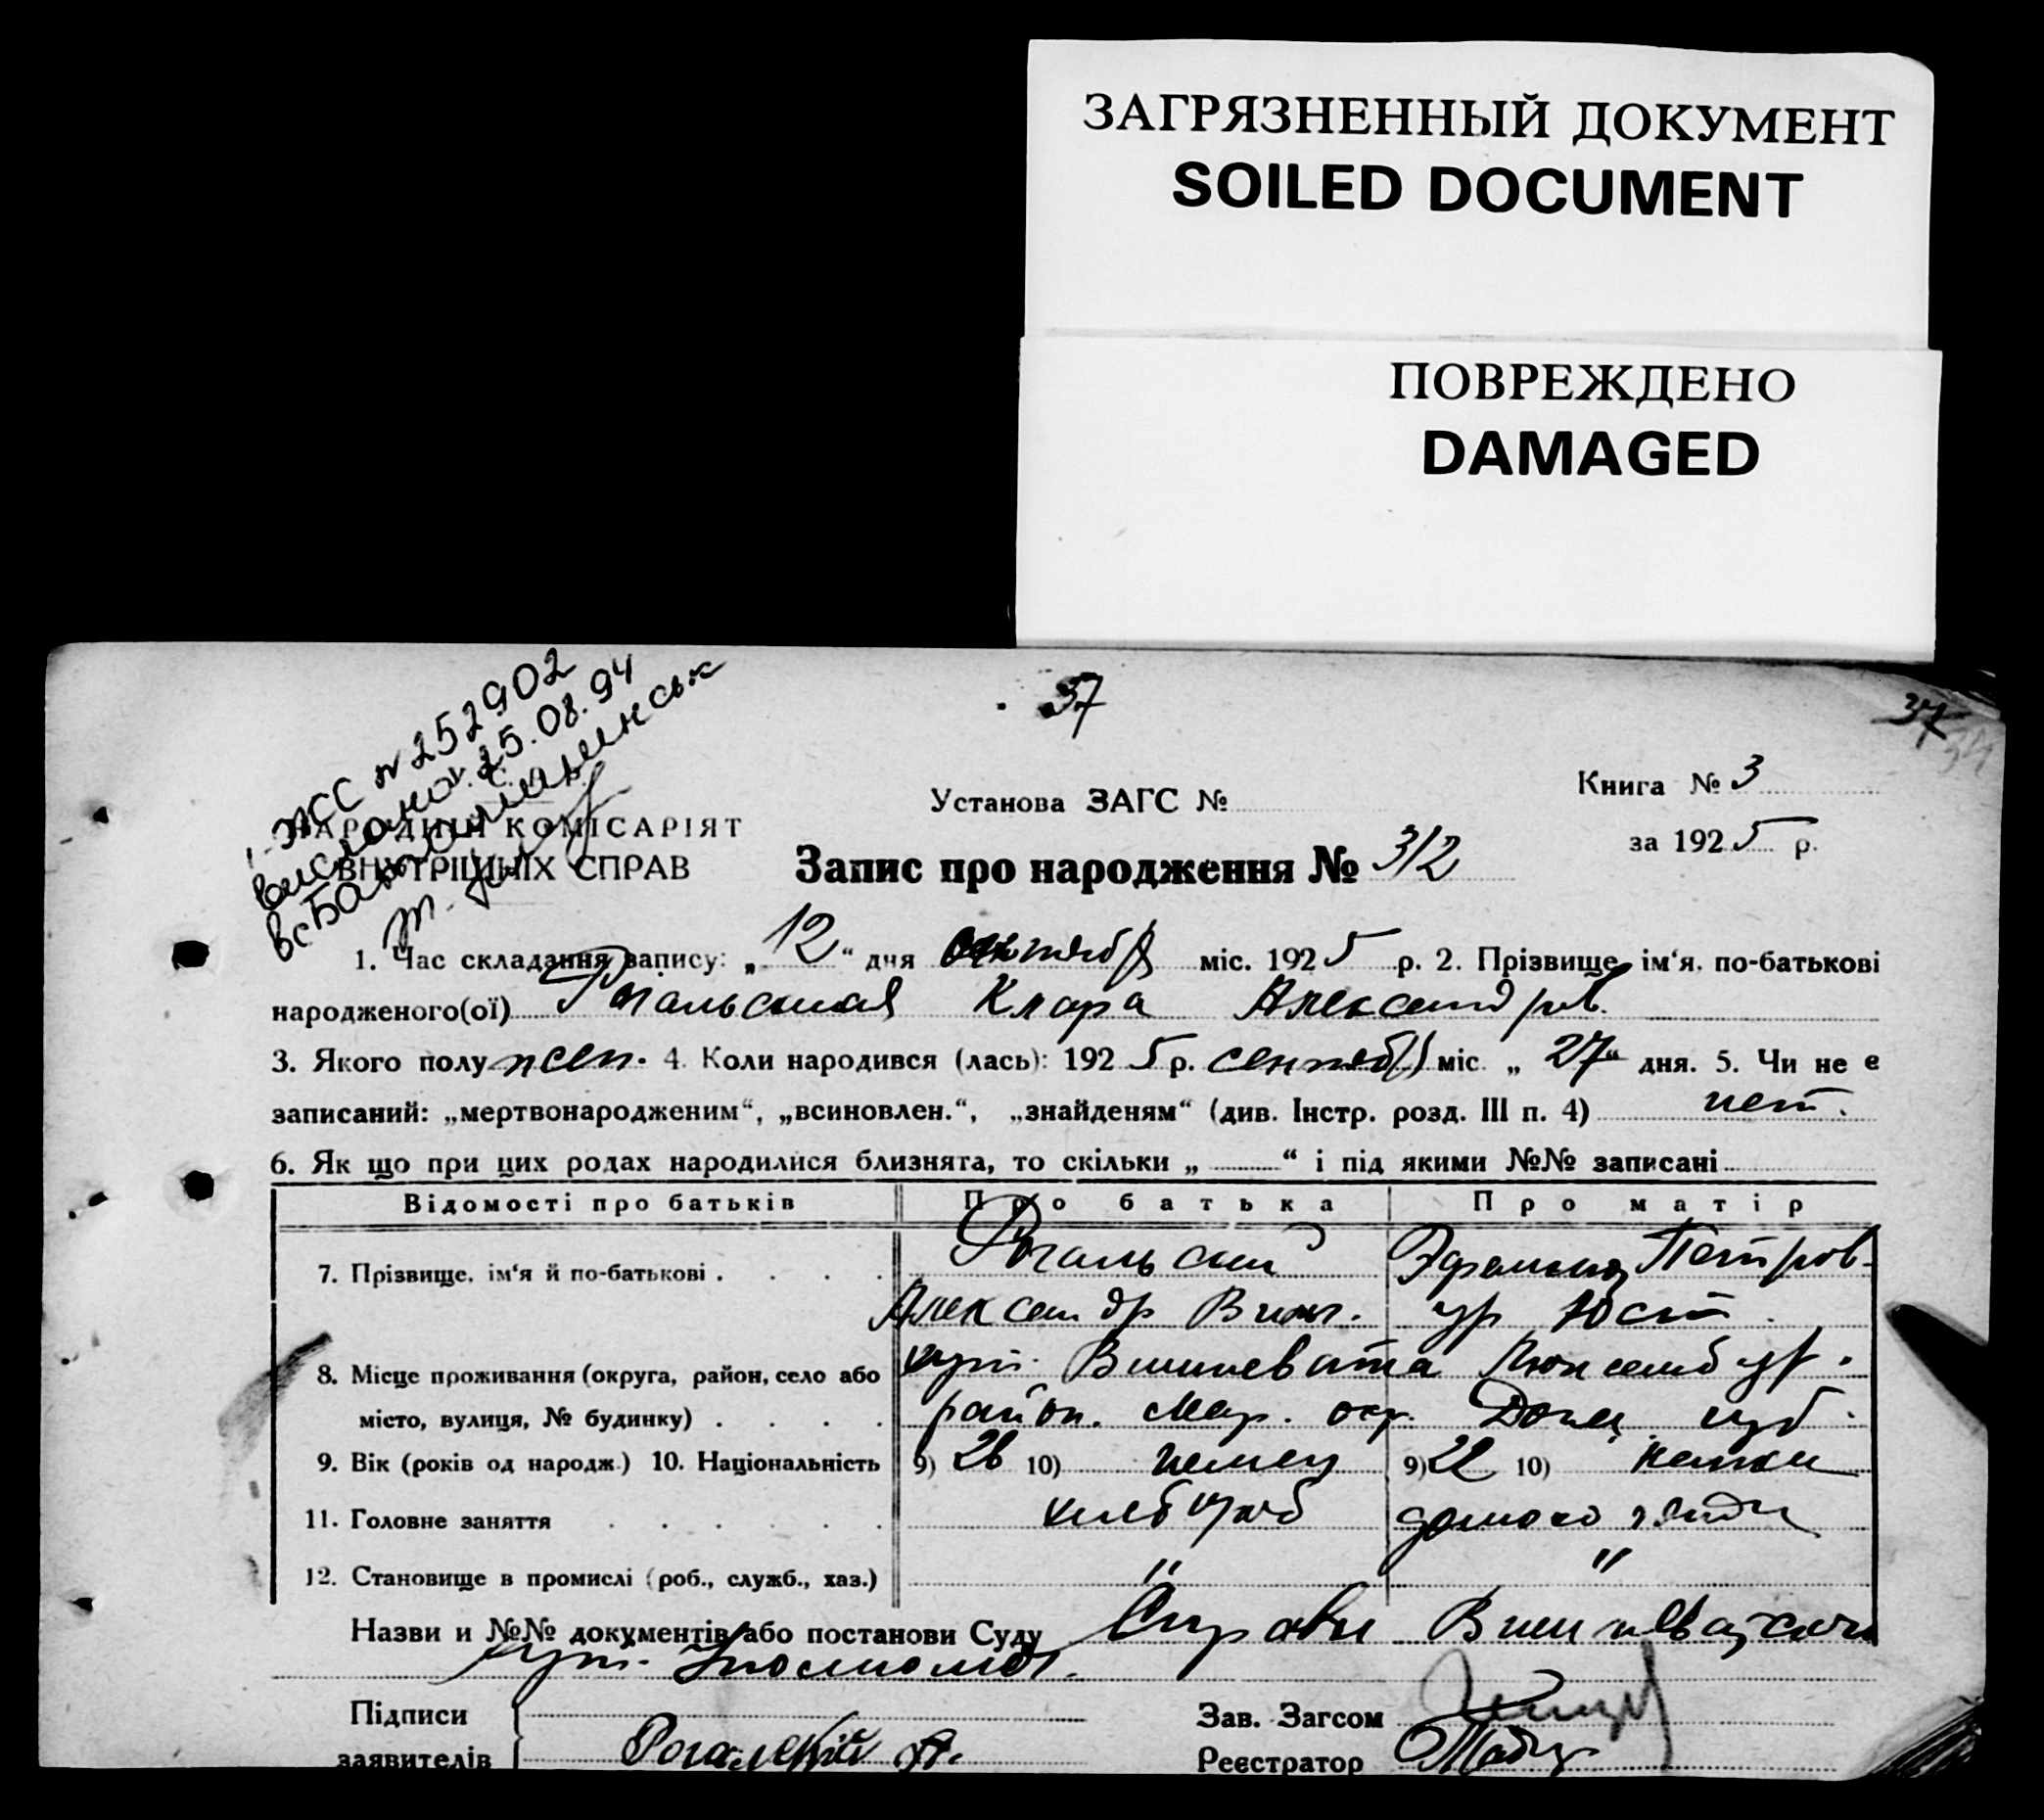 ЗАГРЯЗНЕННЫЙ ДОКУМЕНТ
SOILED DOCUMENT
ПОВРЕЖДЕНО
DAMAGED
ЖСС № 252902
вислано 25.08.94
37
37
Книга № 3
Установа ЗАГС №
за 1925 р.
НАРОДНІЙ КОМІСАРІЯТ
ВНУТРІШНІХ СПРАВ
Запис про народження № 312
1. Час складання запису: „12“ дня октября міс. 1925 р. 2. Прізвище, ім‘я, по-батькові
народженого(ої) Рогальская Клара Александров.
3. Якого полу жен. 4. Коли народився (лась): 1925 р. сентяб. міс. „27“ дня. 5. Чи не є
записаний: „мертвонародженим“, „всиновлен.“, „знайденям“ (див. Інстр. розд. III п. 4) нет.
6. Як що при цих родах народилися близнята, то скільки „ “ і під якими №№ записані
Відомості про батьків Про батька Про матір
7. Прізвище, ім‘я й по-батькові Рогальский Петров.
Александр ур Юст.
8. Місце проживання (округа, район, село або хут. Вишневата Люксембург.
місто, вулиця, № будинку) район. Мар. окр. Донец губ.
9. Вік (років од народж.) 10. Національність 9) 26 10) немец 9) 22 10) немка
11. Головне заняття хлебороб
12. Становище в промислі (роб., служб., хаз.) " "
Назви и №№ документів або постанови Суду Справки
хут.
Підписи
Зав. Загсом
заявителів Рогальский А.
Реєстратор